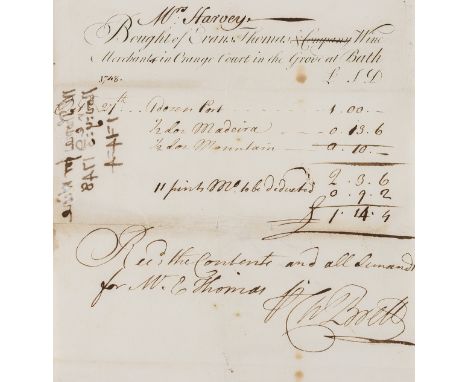 Mrs Harvey
Bought of Evan Thomas & Company Wine
Merchants in Orange Court in the Grove at Bath
1748. L S D
27th 1 dozen Port 1.00.
½ Doz Madeira 0.13.6
½ Doz Mountain 0.10.
2.3.6
11 pints Mo to be deducted 0.9.2
£ 1.14.4
Recd the Contents and all demands
for Mr E Thomas
Ch Brett
1748
1-14-4